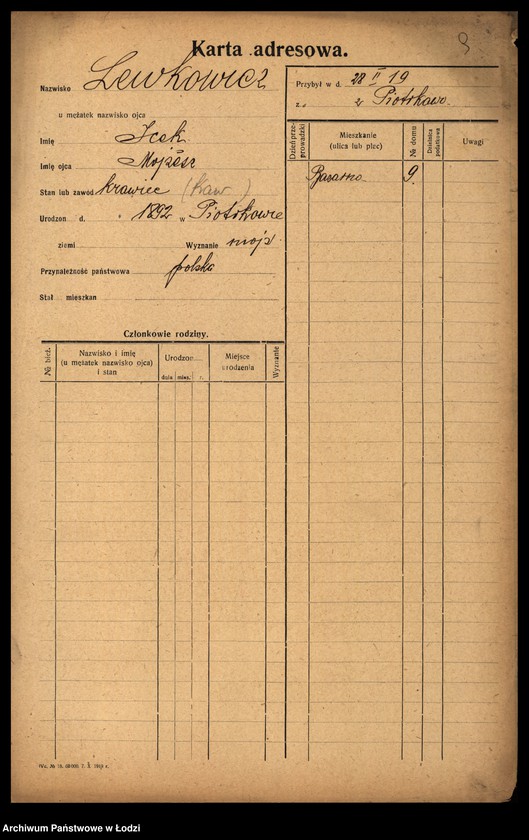 Karta adresowa.
Nazwisko Lewkowicz
u mężatek nazwisko ojca
Imię Icek
Imię ojca Mojżesz
Stan lub zawód krawiec (kaw)
Urodzon d. 1892 w Piotrkowie
ziemi Wyznanie mojż
Przynależność państwowa polska
Stał mieszkan
Członkowie rodziny.
№ bież.
Nazwisko i imię
(u mężatek nazwisko ojca)
i stan
Urodzon
dnia mies. r.
Miejsce
urodzenia
Wyznanie
Przybył w d. 28 II 19
z Piotrkowa.
Dzień prze-
prowadzki
Mieszkanie
(ulica lub plac)
№ domu
Dzielnica
podatkowa
Uwagi
9.
Archiwum Państwowe w Łodzi